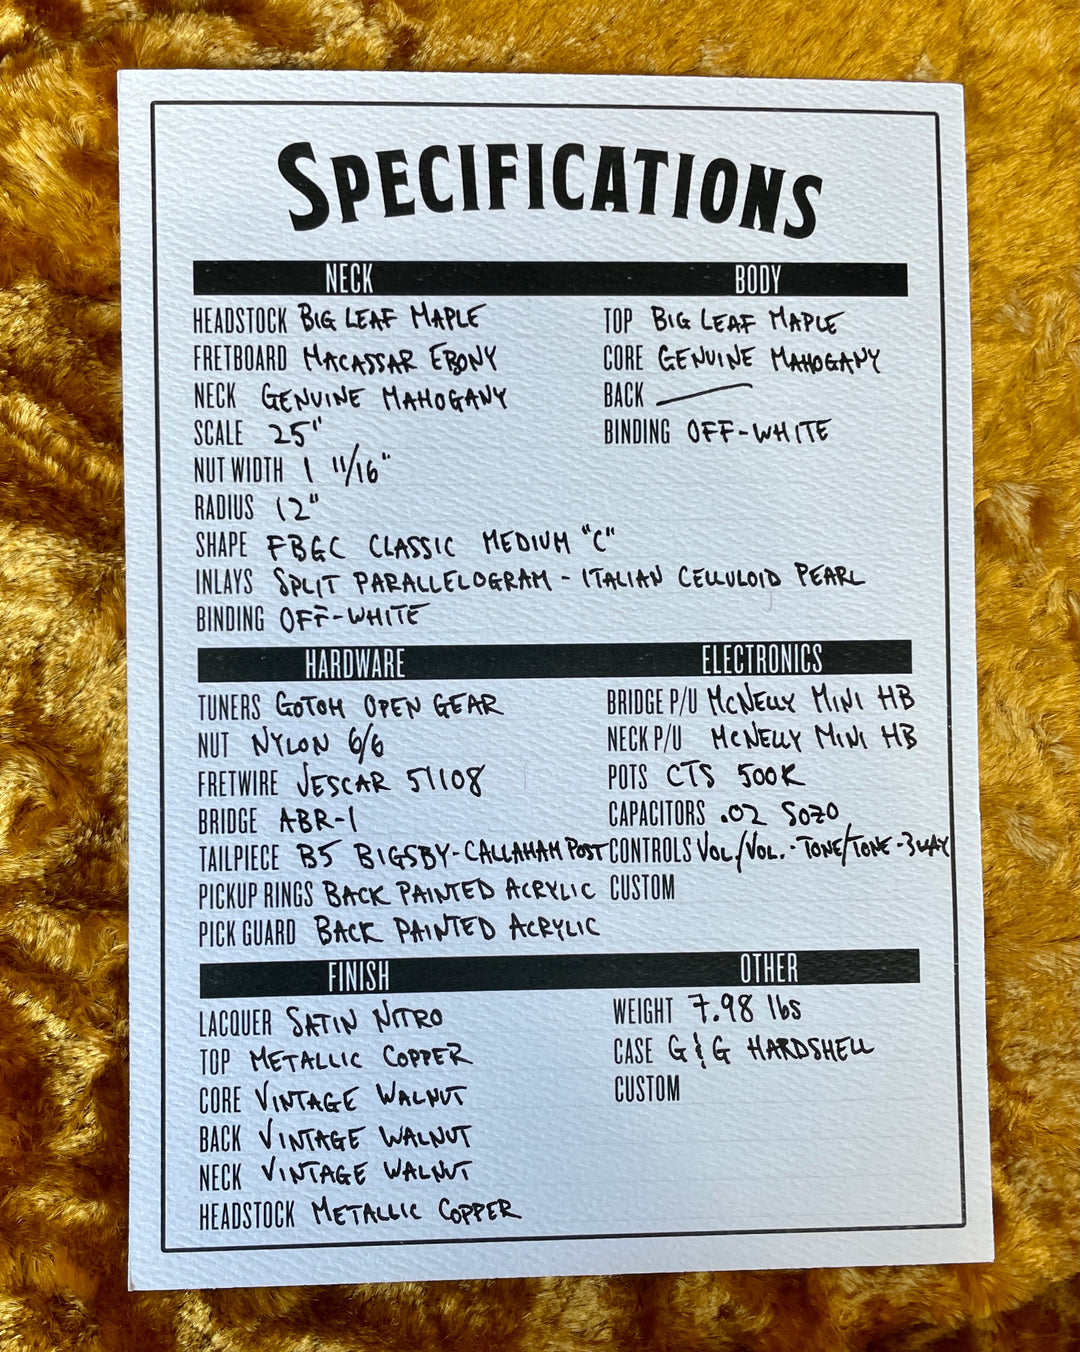 SPECIFICATIONS
NECK
HEADSTOCK BIG LEAF MAPLE
FRETBOARD MACASSAR EBONY
NECK GENUINE MAHOGANY
SCALE 25"
NUT WIDTH 1 11/16"
RADIUS 12"
SHAPE FBGC CLASSIC MEDIUM "C"
INLAYS SPLIT PARALLELOGRAM - ITALIAN CELLULOID PEARL
BINDING OFF-WHITE
BODY
TOP BIG LEAF MAPLE
CORE GENUINE MAHOGANY
BACK —
BINDING OFF-WHITE
HARDWARE
TUNERS GOTOH OPEN GEAR
NUT NYLON 6/6
FRETWIRE JESCAR 51108
BRIDGE ABR-1
TAILPIECE B5 BIGSBY-CALLAHAM POST
PICKUP RINGS BACK PAINTED ACRYLIC
PICK GUARD BACK PAINTED ACRYLIC
ELECTRONICS
BRIDGE P/U MCNELLY MINI HB
NECK P/U MCNELLY MINI HB
POTS CTS 500K
CAPACITORS .02 SOZO
CONTROLS VOL/VOL. - TONE/TONE - 3 WAY
CUSTOM
FINISH
LACQUER SATIN NITRO
TOP METALLIC COPPER
CORE VINTAGE WALNUT
BACK VINTAGE WALNUT
NECK VINTAGE WALNUT
HEADSTOCK METALLIC COPPER
OTHER
WEIGHT 7.98 lbs
CASE G & G HARDSHELL
CUSTOM